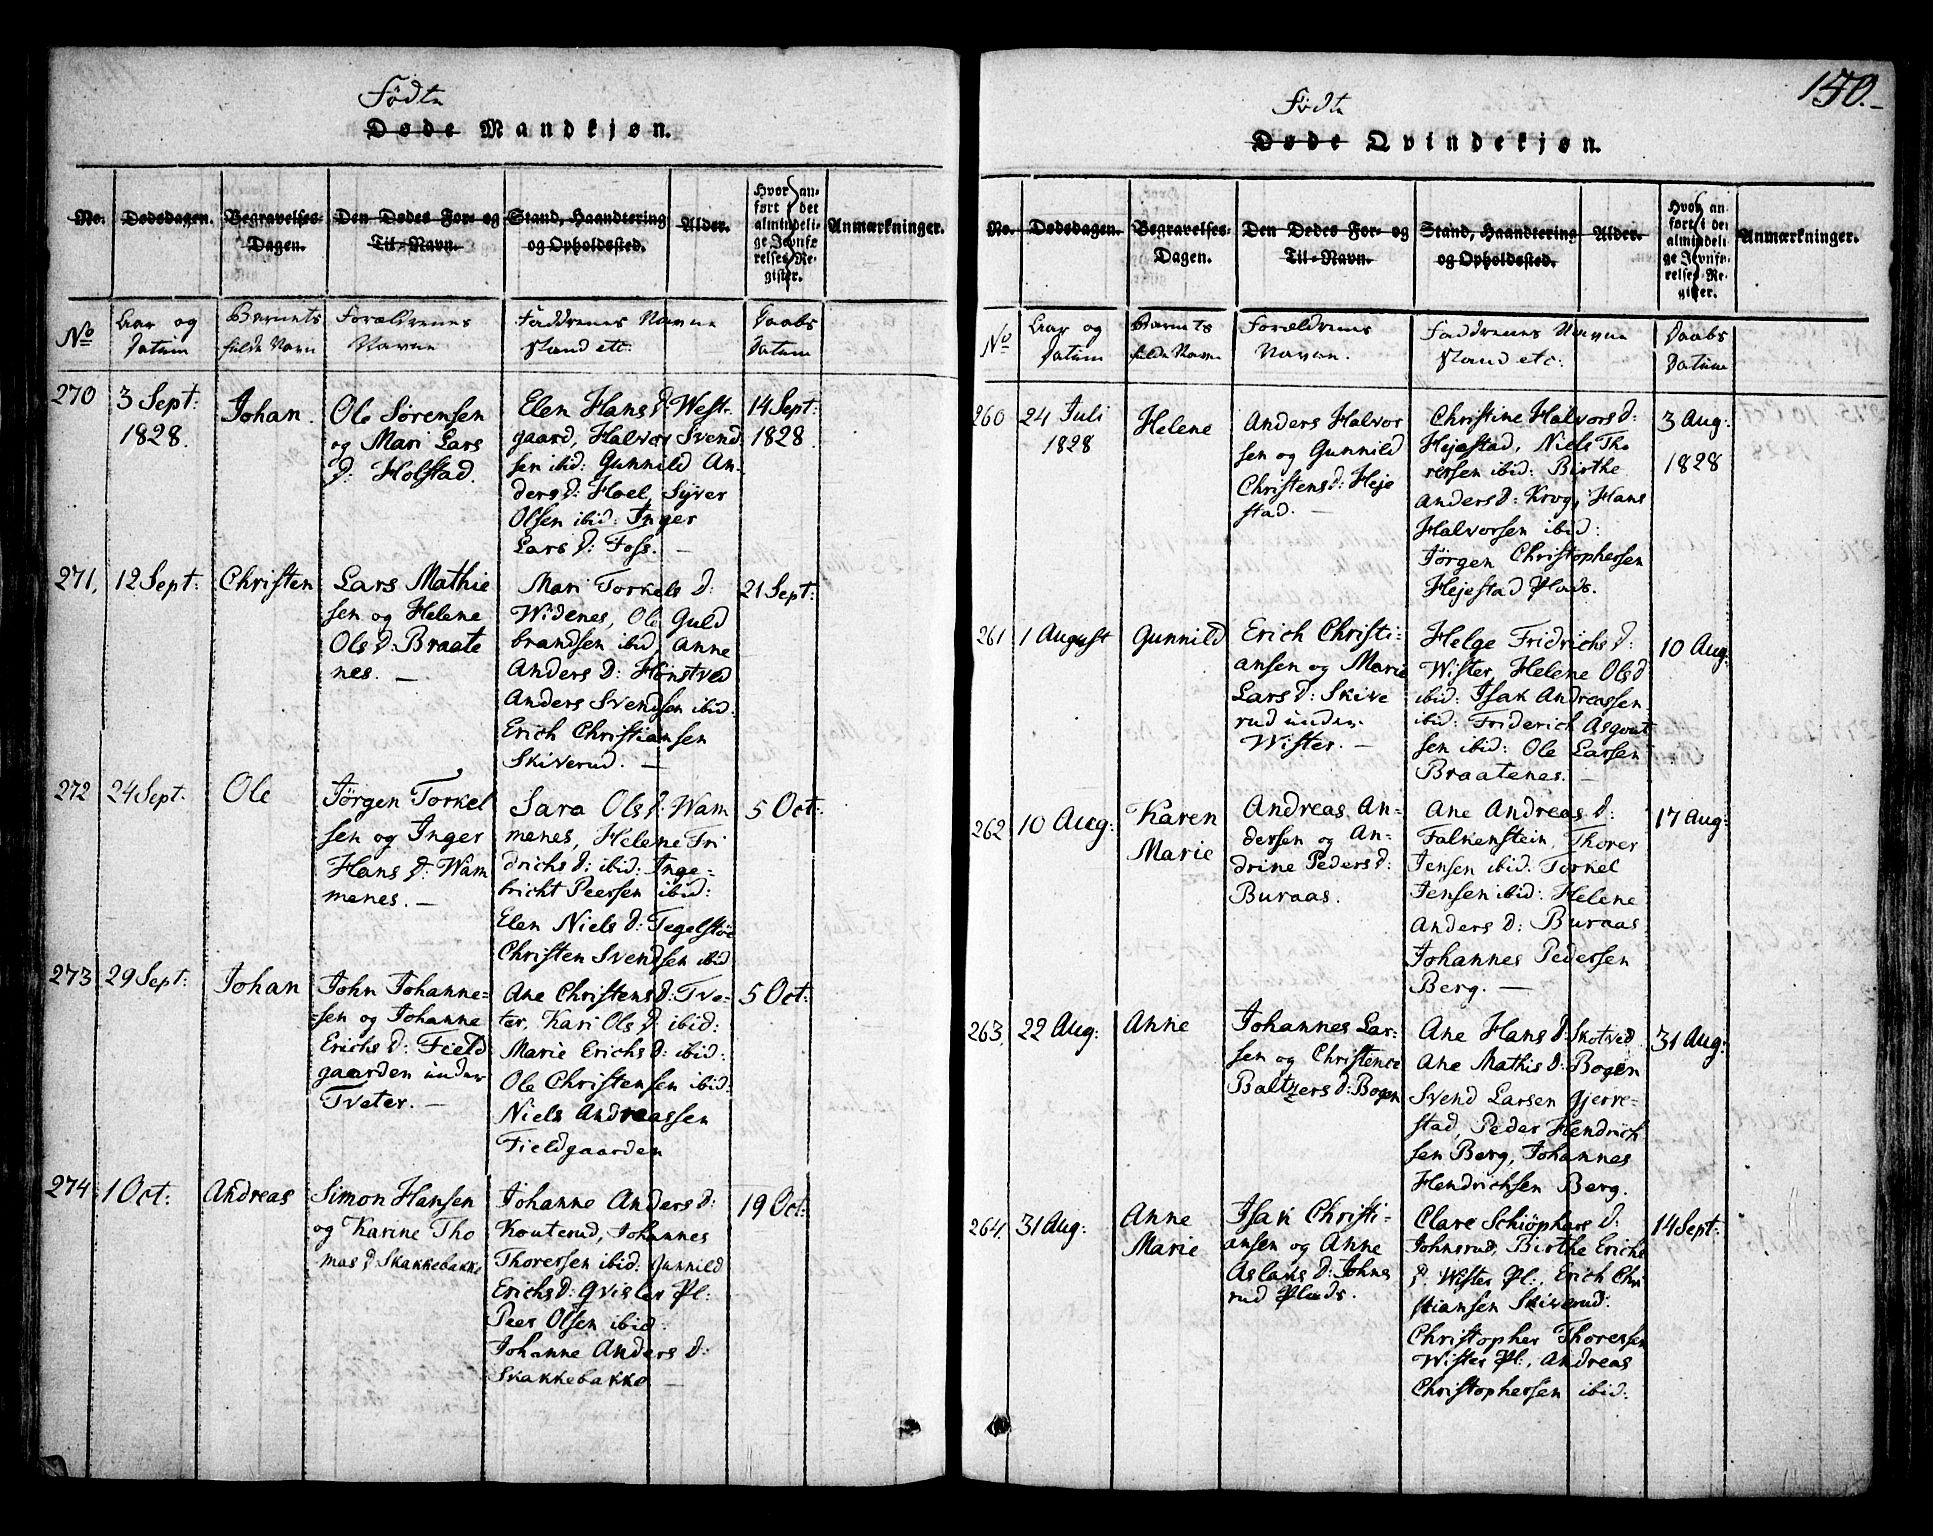 Födte
Døde Mandkjøn.
No.
Dødsdagen.
Begravelses-
Dagen.
Den Dødes For- og
Til-Navn.
Stand, Haandtering
og Opholdssted.
Alder.
Hvor an-
ført i det
almindeli-
ge Jevnfø
relses-Re-
gister.
Anmærkninger.
No
Aar og
Datum
Barnets
fulde Navn
Forældrenes
Navne
Faddrenes Navne
stand etc.
Daabs
Datum
270
3 Sept:
1828.
Johan.
Ole Sörensen
og Mari Lars
D: Holstad.
Elen Hans D: West-
gaard, Halvor Svend
sen ibid: Gunnild An-
ders D: Hoel, Syver
Olsen ibid: Inger
Lars D: Foss. —
14 Sept:
1828.
271,
12 Sept:
Christen
Lars Mathie
sen og Helene
Ols D: Braate
nes. —
Mari Torkels D:
Widenes, Ole Guld
brandsen ibid, Anne
Anders D: Hönstved
Anders Svendsen ibid:
Erich Christiansen
Skiverud. —
21 Sept:
272
24 Sept.
Ole
Jörgen Torkel
sen og Inger
Hans D: Wam
menes. —
Sara Ols D: Wam
menes, Helene Fri
drichs D: ibid: Inge-
bricht Peersen ibid:
Elen Niels D: Tegelstöe
Christen Svendsen ibid
5 Oct:
273
29 Sept:
Johan
John Johanne-
sen og Johanne
Erichs D: Field
gaarden under
Tveter. —
Ane Christens D: Tve-
ter, Kari Ols D: ibid:
Marie Erichs D: ibid:
Ole Christensen ibid:
Niels Andreassen
Fieldgaarden
5 Oct:
274
1 Oct:
Andreas
Simon Hansen
og Karine Tho
mas D: Skakkebakke
Johanne Anders D:
Kouterud, Johannes
Thoressen ibid: Gunnild
Erichs D: Gvisler Pl:
Peer Olsen ibid:
Johanne Anders D:
Skakkebakke —
19 Oct:
150.-
Födte
Døde Qvindekjøn.
No.
Dødsdagen.
Begravelses-
Dagen.
Den Dødes For- og
Til-Navn.
Stand, Haandtering
og Opholdssted.
Alder.
Hvor an
ført i det
almindeli
ge Jevnfø-
relses-Re-
gister.
Anmærkninger.
No
Aar og
Datum
Barnets
fulde Navn
Forældrenes
Navne.
Faddrenes Navne
stand etc:
Daabs
Datum
260
24 Juli
1828
Helene
Anders Halvor
sen og Gunnild
Christens D: Heje
stad. —
Christine Halvors D:
Hejestad, Niels Tho
ressen ibid: Birthe
Anders D: Krog, Hans
Halvorsen ibid:
Jörgen Christophersen
Hejestad Plads.
3 Aug:
1828
261
1 August
Gunnild
Erich Christi-
ansen og Marie
Lars D: Skive
rud under
Wister. —
Helge Fridrichs D:
Wister, Helene Ols D
ibid: Isak Andreassen
ibid: Friderich Asgout
sen ibid: Ole Larsen
Braatenes. —
10 Aug:
262
10 Aug:
Karen
Marie
Andreas An-
dersen og An-
drine Peders D:
Buraas.
Ane Andreas D:
Falkenstein, Thorer
Jensen ibid: Torkel
Jensen ibid: Helene
Anders D: Buraas
Johannes Pedersen
Berg. —
17 Aug:
263.
22 Aug:
Anne
Johannes Lar-
sen og Christence
Baltzers D: Bogen
Ane Hans D: Skotved
Ane Mathis D: Bogen
Svend Larsen Gjerre-
stad, Peder Hendrich
sen Berg, Johannes
Hendrichsen Berg.
31 Aug:
264.
31 Aug:
Anne
Marie
Isak Christi-
ansen og Anne
Aslaks D: Johns
rud Plads.
Clare Schiöphars D:
Johnsrud, Birthe Erichs
D. Wister Pl:, Erich Chri
stiansen Skiverud:
Christopher Thoressen
Wister Pl:, Andreas
Christophersen ibid:
14 Sept: